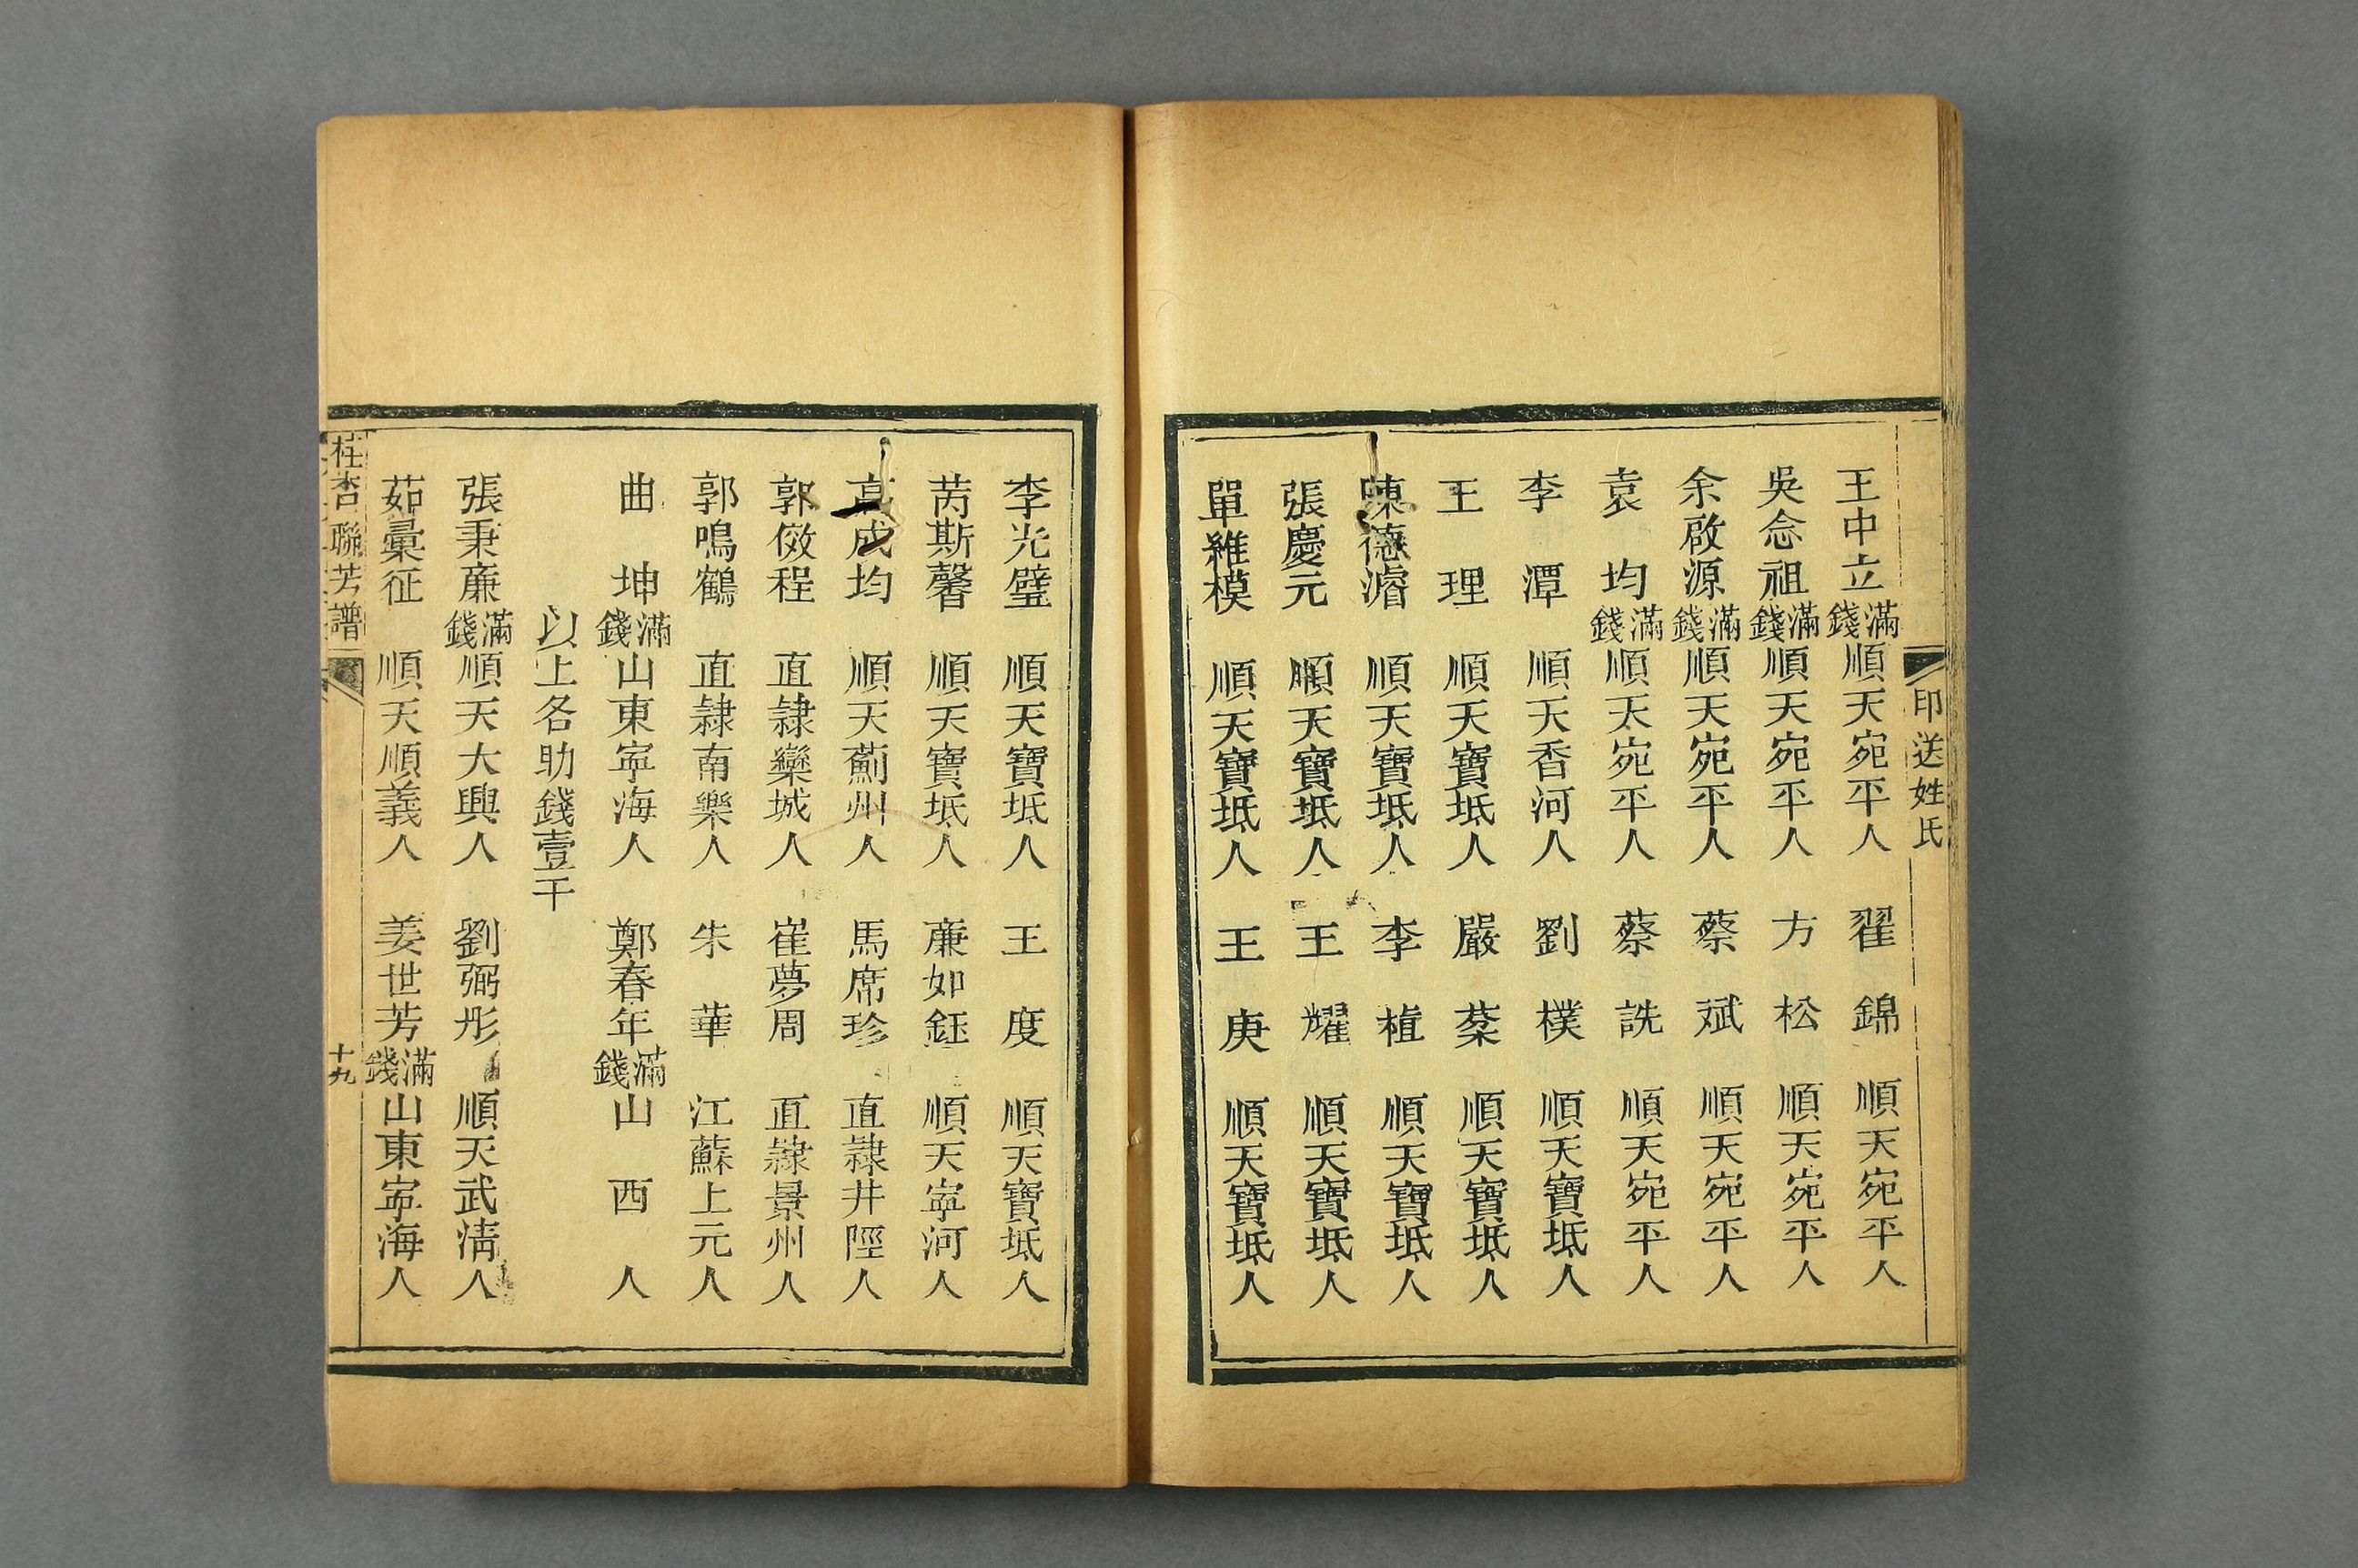 印送姓氏
王中立滿錢順天宛平人 翟錦 順天宛平人
吳念祖滿錢順天宛平人 方松 順天宛平人
余啟源滿錢順天宛平人 蔡斌 順天宛平人
袁均滿錢順天宛平人 蔡詵 順天宛平人
李潭 順天香河人 劉樸 順天寶坻人
王理 順天寶坻人 嚴棻 順天寶坻人
陳德濬 順天寶坻人 李植 順天寶坻人
張慶元 順天寶坻人 王耀 順天寶坻人
單維模 順天寶坻人 王庚 順天寶坻人
李光璧 順天寶坻人 王度 順天寶坻人
芮斯馨 順天寶坻人 亷如鈺 順天寧河人
高成均 順天薊州人 馬席珍 直隸井陘人
郭傚程 直隸欒城人 崔夢周 直隸景州人
郭鳴鶴 直隸南樂人 朱華 江蘇上元人
曲坤滿錢山東寧海人 鄭春年滿錢山西人
以上各助錢壹千
張秉亷滿錢順天大興人 劉弼彤 順天武清人
茹彙征 順天順義人 姜世芳滿錢山東寧海人
桂杏聯芳譜 十九